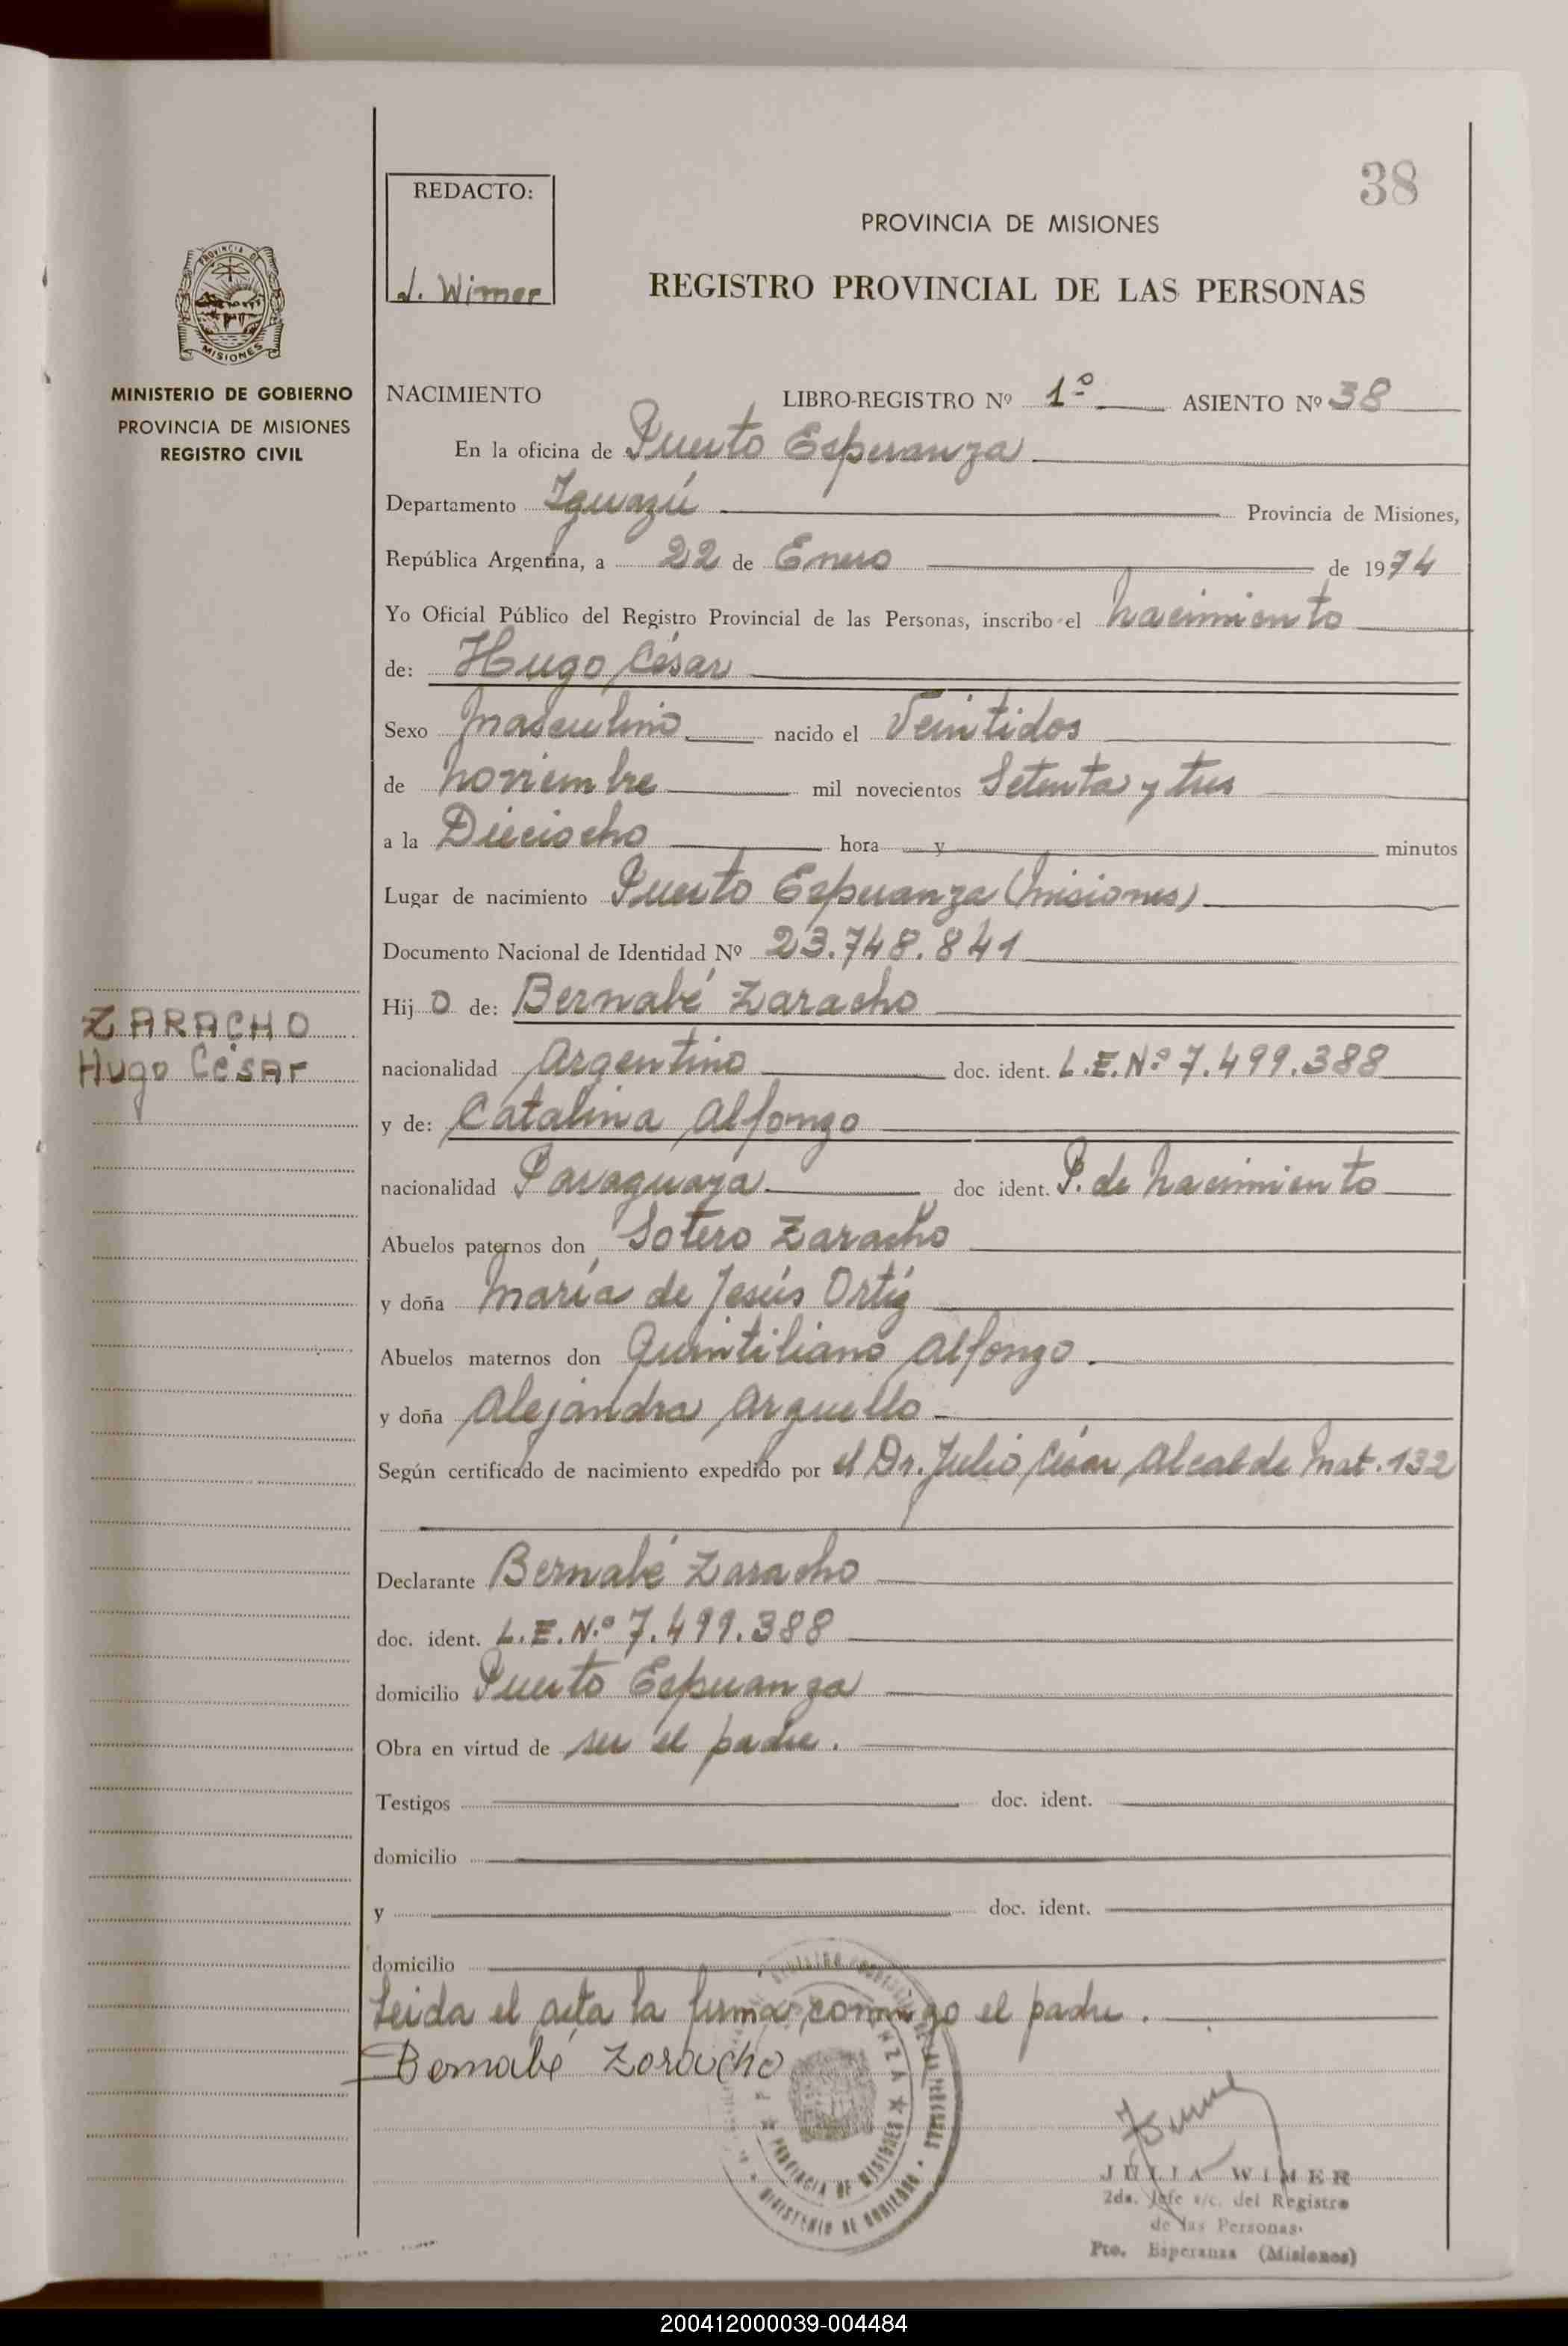 38
REDACTO:
J. Wimer
PROVINCIA DE MISIONES
REGISTRO PROVINCIAL DE LAS PERSONAS
PROVINCIA DE
MISIONES
MINISTERIO DE GOBIERNO
PROVINCIA DE MISIONES
REGISTRO CIVIL
NACIMIENTO LIBRO-REGISTRO Nº 1º ASIENTO Nº 38
En la oficina de Puerto Esperanza
Departamento Iguazú Provincia de Misiones,
República Argentina, a 22 de Enero de 1974
Yo Oficial Público del Registro Provincial de las Personas, inscribo el nacimiento
de: Hugo César
Sexo masculino nacido el Veintidos
de noviembre mil novecientos Setenta y tres
a la Dieciocho hora y minutos
Lugar de nacimiento Puerto Esperanza (misiones)
Documento Nacional de Identidad Nº 23.748.841
ZARACHO
Hugo César
Hij o de: Bernabé Zaracho
nacionalidad Argentino doc. ident. L.E.Nº 7.499.388
y de: Catalina Alfonzo
nacionalidad Paraguaya doc ident. P. de nacimiento
Abuelos paternos don Sotero Zaracho
y doña María de Jesús Ortíz
Abuelos maternos don Quintiliano Alfonzo.
y doña Alejandra Arguello
Según certificado de nacimiento expedido por el Dr. Julio César Alcalde Mat. 132
Declarante Bernabé Zaracho
doc. ident. L.E.N.º 7.499.388
domicilio Puerto Esperanza
Obra en virtud de ser el padre.
Testigos doc. ident.
domicilio
y doc. ident.
domicilio
Leida el acta la firma conmigo el padre.
Bernabé Zaracho
PROVINCIA DE MISIONES
MINISTERIO DE GOBIERNO
JULIA WIMER
2da. Jefe a/c. del Registro
de las Personas.
Pto. Esperanza (Misiones)
200412000039-004484